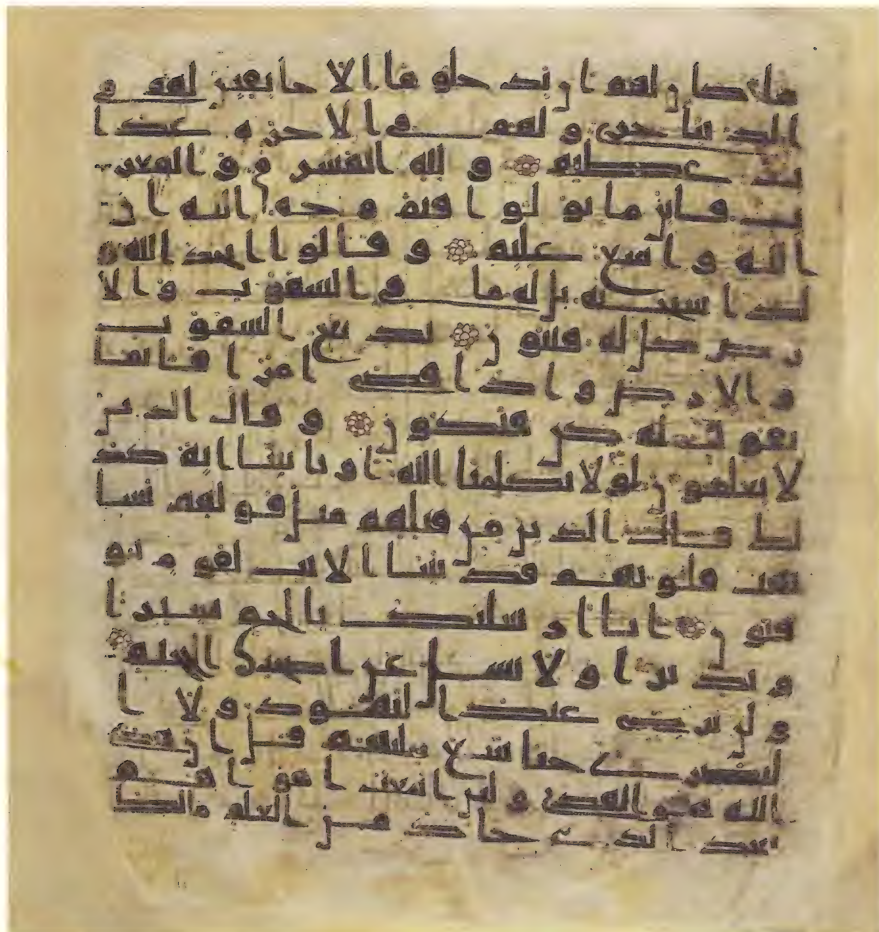 ما كان لهم ان يدخلوها الا خايفين لهم في
الدنيا خزي و لهم في الاخرة عذا
ب عظيم و لله المشرق و المغر
ب فاينما تولوا فثم وجه الله ان
الله و اسع عليم و قالوا اتخذ الله و
لدا سبحنه بل له ما في السموت و الا
رض كل له قنتون بديع السموت
و الارض و اذا قضى امرا فانما
يقول له كن فيكون و قال الذين
لا يعلمون لولا يكلمنا الله او تاتينا اية كذ
لك قال الذين من قبلهم مثل قولهم تشا
بهت قلوبهم قد بينا الايت لقوم يو
قنون انا ارسلنك بالحق بشيرا
و نذيرا و لا تسل عن اصحب الجحيم
و لن ترضى عنك اليهود و لا ا
لنصرى حتا تتبع ملتهم قل ان هدى
الله هو الهدى و لين اتبعت اهواهم
بعد الذي جاك من العلم مالك